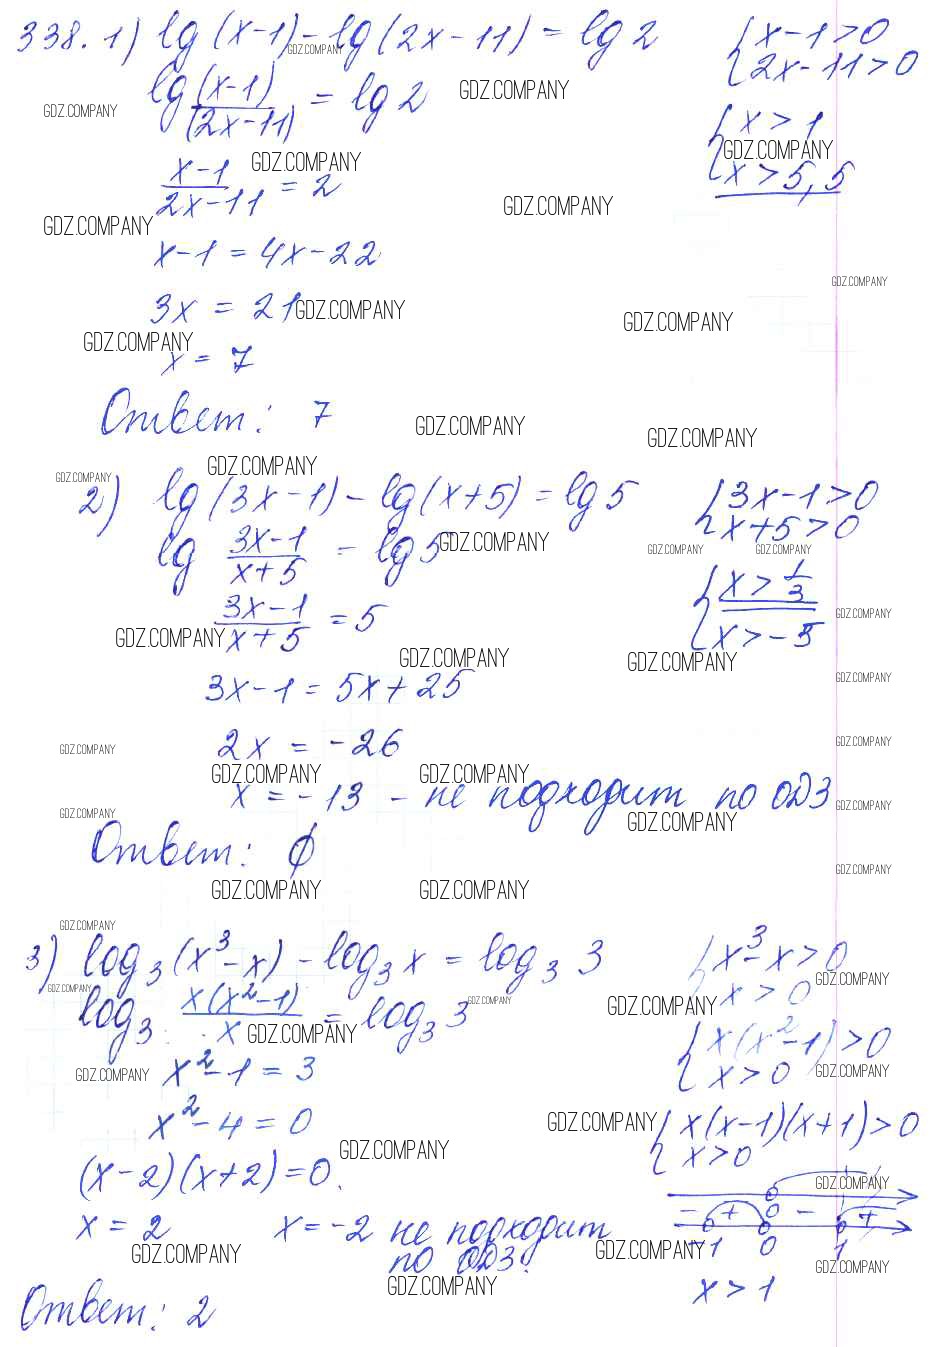 338. 1) lg(x-1) - lg(2x-11) = lg2
{x-1>0
{2x-11>0
lg (x-1)/(2x-11) = lg2
{x>1
{x>5,5
(x-1)/(2x-11) = 2
x-1 = 4x-22
3x = 21
x = 7
Ответ: 7
2) lg(3x-1) - lg(x+5) = lg5
{3x-1>0
{x+5>0
lg (3x-1)/(x+5) = lg5
{x>1/3
{x>-5
(3x-1)/(x+5) = 5
3x-1 = 5x+25
2x = -26
x = -13 - не подходит по ОДЗ
Ответ: ∅
3) log₃(x³-x) - log₃x = log₃3
{x³-x>0
{x>0
log₃ x(x²-1)/x = log₃3
{x(x²-1)>0
{x>0
x²-1 = 3
x²-4 = 0
{x(x-1)(x+1)>0
{x>0
(x-2)(x+2)=0.
0
- + - +
-1 0 1
x = 2 x = -2 не подходит
по ОДЗ.
x>1
Ответ: 2
GDZ.COMPANY